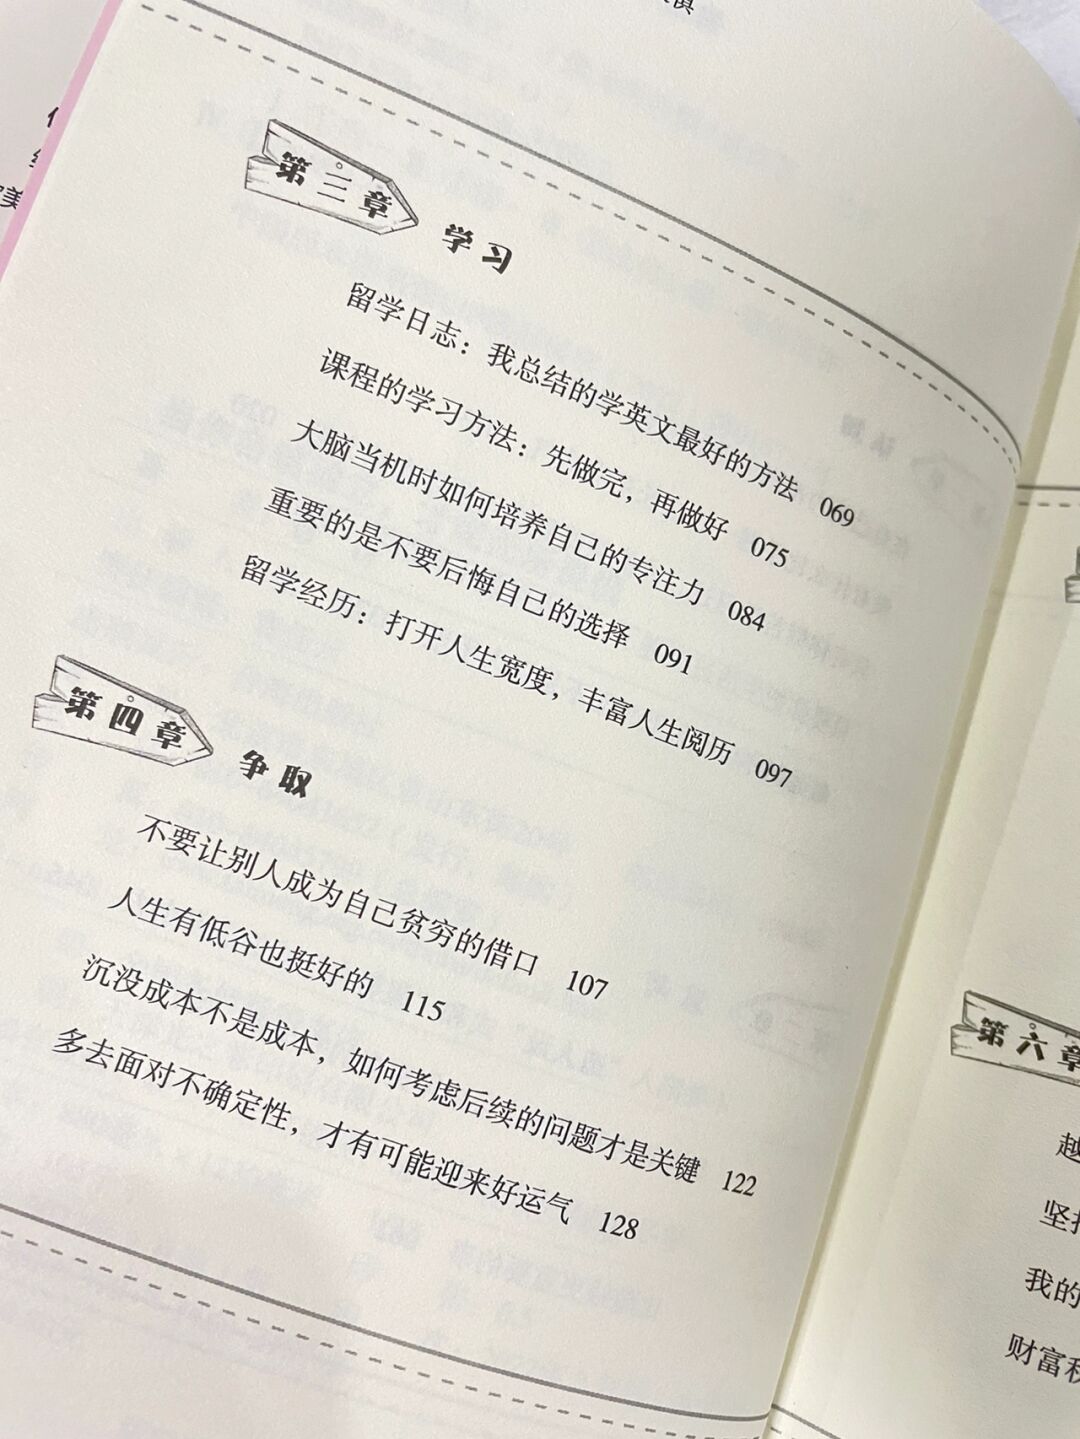 第三章 学习
留学日志：我总结的学英文最好的方法 069
课程的学习方法：先做完，再做好 075
大脑当机时如何培养自己的专注力 084
重要的是不要后悔自己的选择 091
留学经历：打开人生宽度，丰富人生阅历 097
第四章 争取
不要让别人成为自己贫穷的借口 107
人生有低谷也挺好的 115
沉没成本不是成本，如何考虑后续的问题才是关键 122
多去面对不确定性，才有可能迎来好运气 128
第六章
越
坚持
我的
财富积